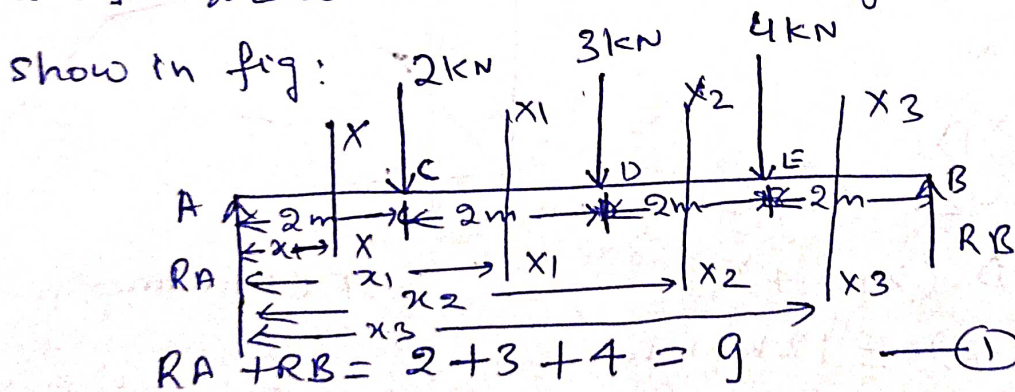 show in fig:
2KN 3KN 4KN
X X1 X2 X3
A C D E B
2m 2m 2m 2m
x X
RA x1 X1 X2 X3 RB
x2
x3
RA +RB = 2+3+4 = 9 —①